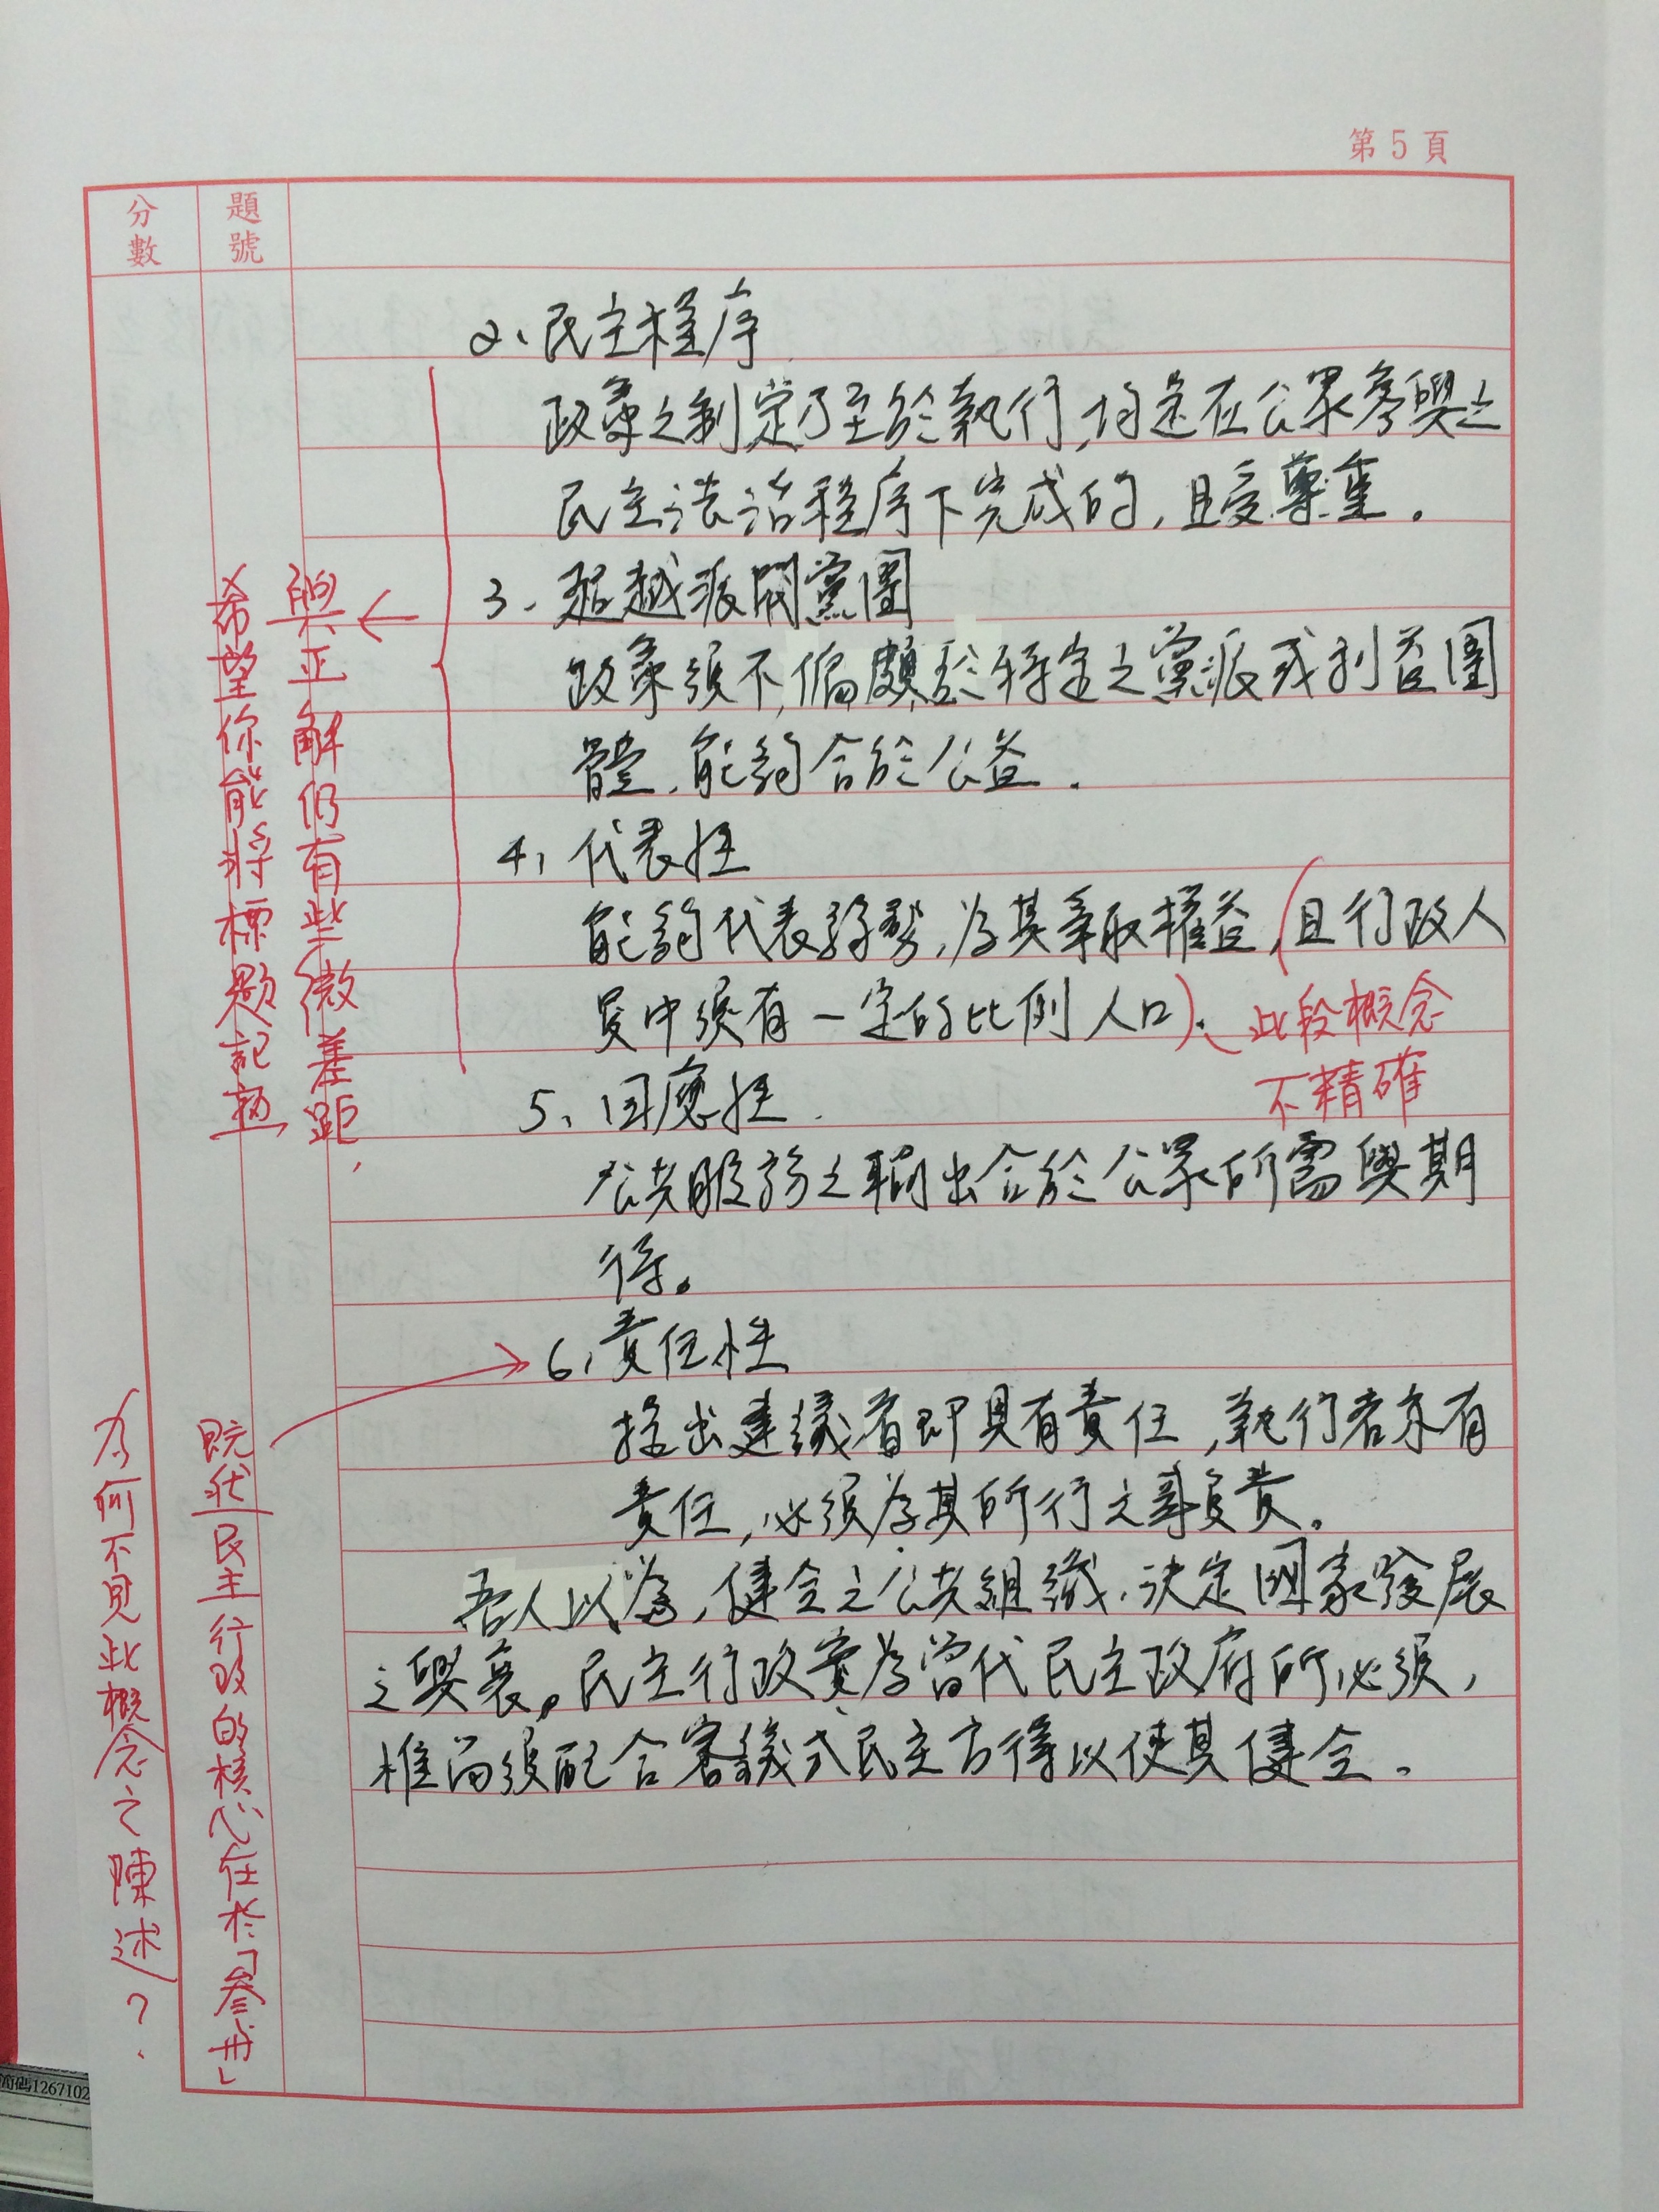 第5頁
分數
題號
2、民主程序
政策之制定乃至於執行,均是在公眾參與之
民主法治程序下完成的,且受尊重。
3、超越派閥黨團
政策須不偏頗於特定之黨派或利益團
體,能夠合於公益.
4、代表性
能夠代表弱勢,為其爭取權益,(且行政人
員中須有一定的比例人口)、
此段概念
不精確
5、回應性
公共服務之輸出合於公眾所需與期
待。
6、責任性
提出建議者即具有責任,執行者亦有
責任,必須為其所行之事負責。
吾人以為,健全之公共組織,決定國家發展
之興衰。民主行政實為當代民主政府所必須,
惟尚須配合審議式民主方得以使其健全。
與正解仍有些微差距,
希望你能將標題記熟
既然民主行政的核心在於「參與」
為何不見此概念之陳述?
简碼1267102